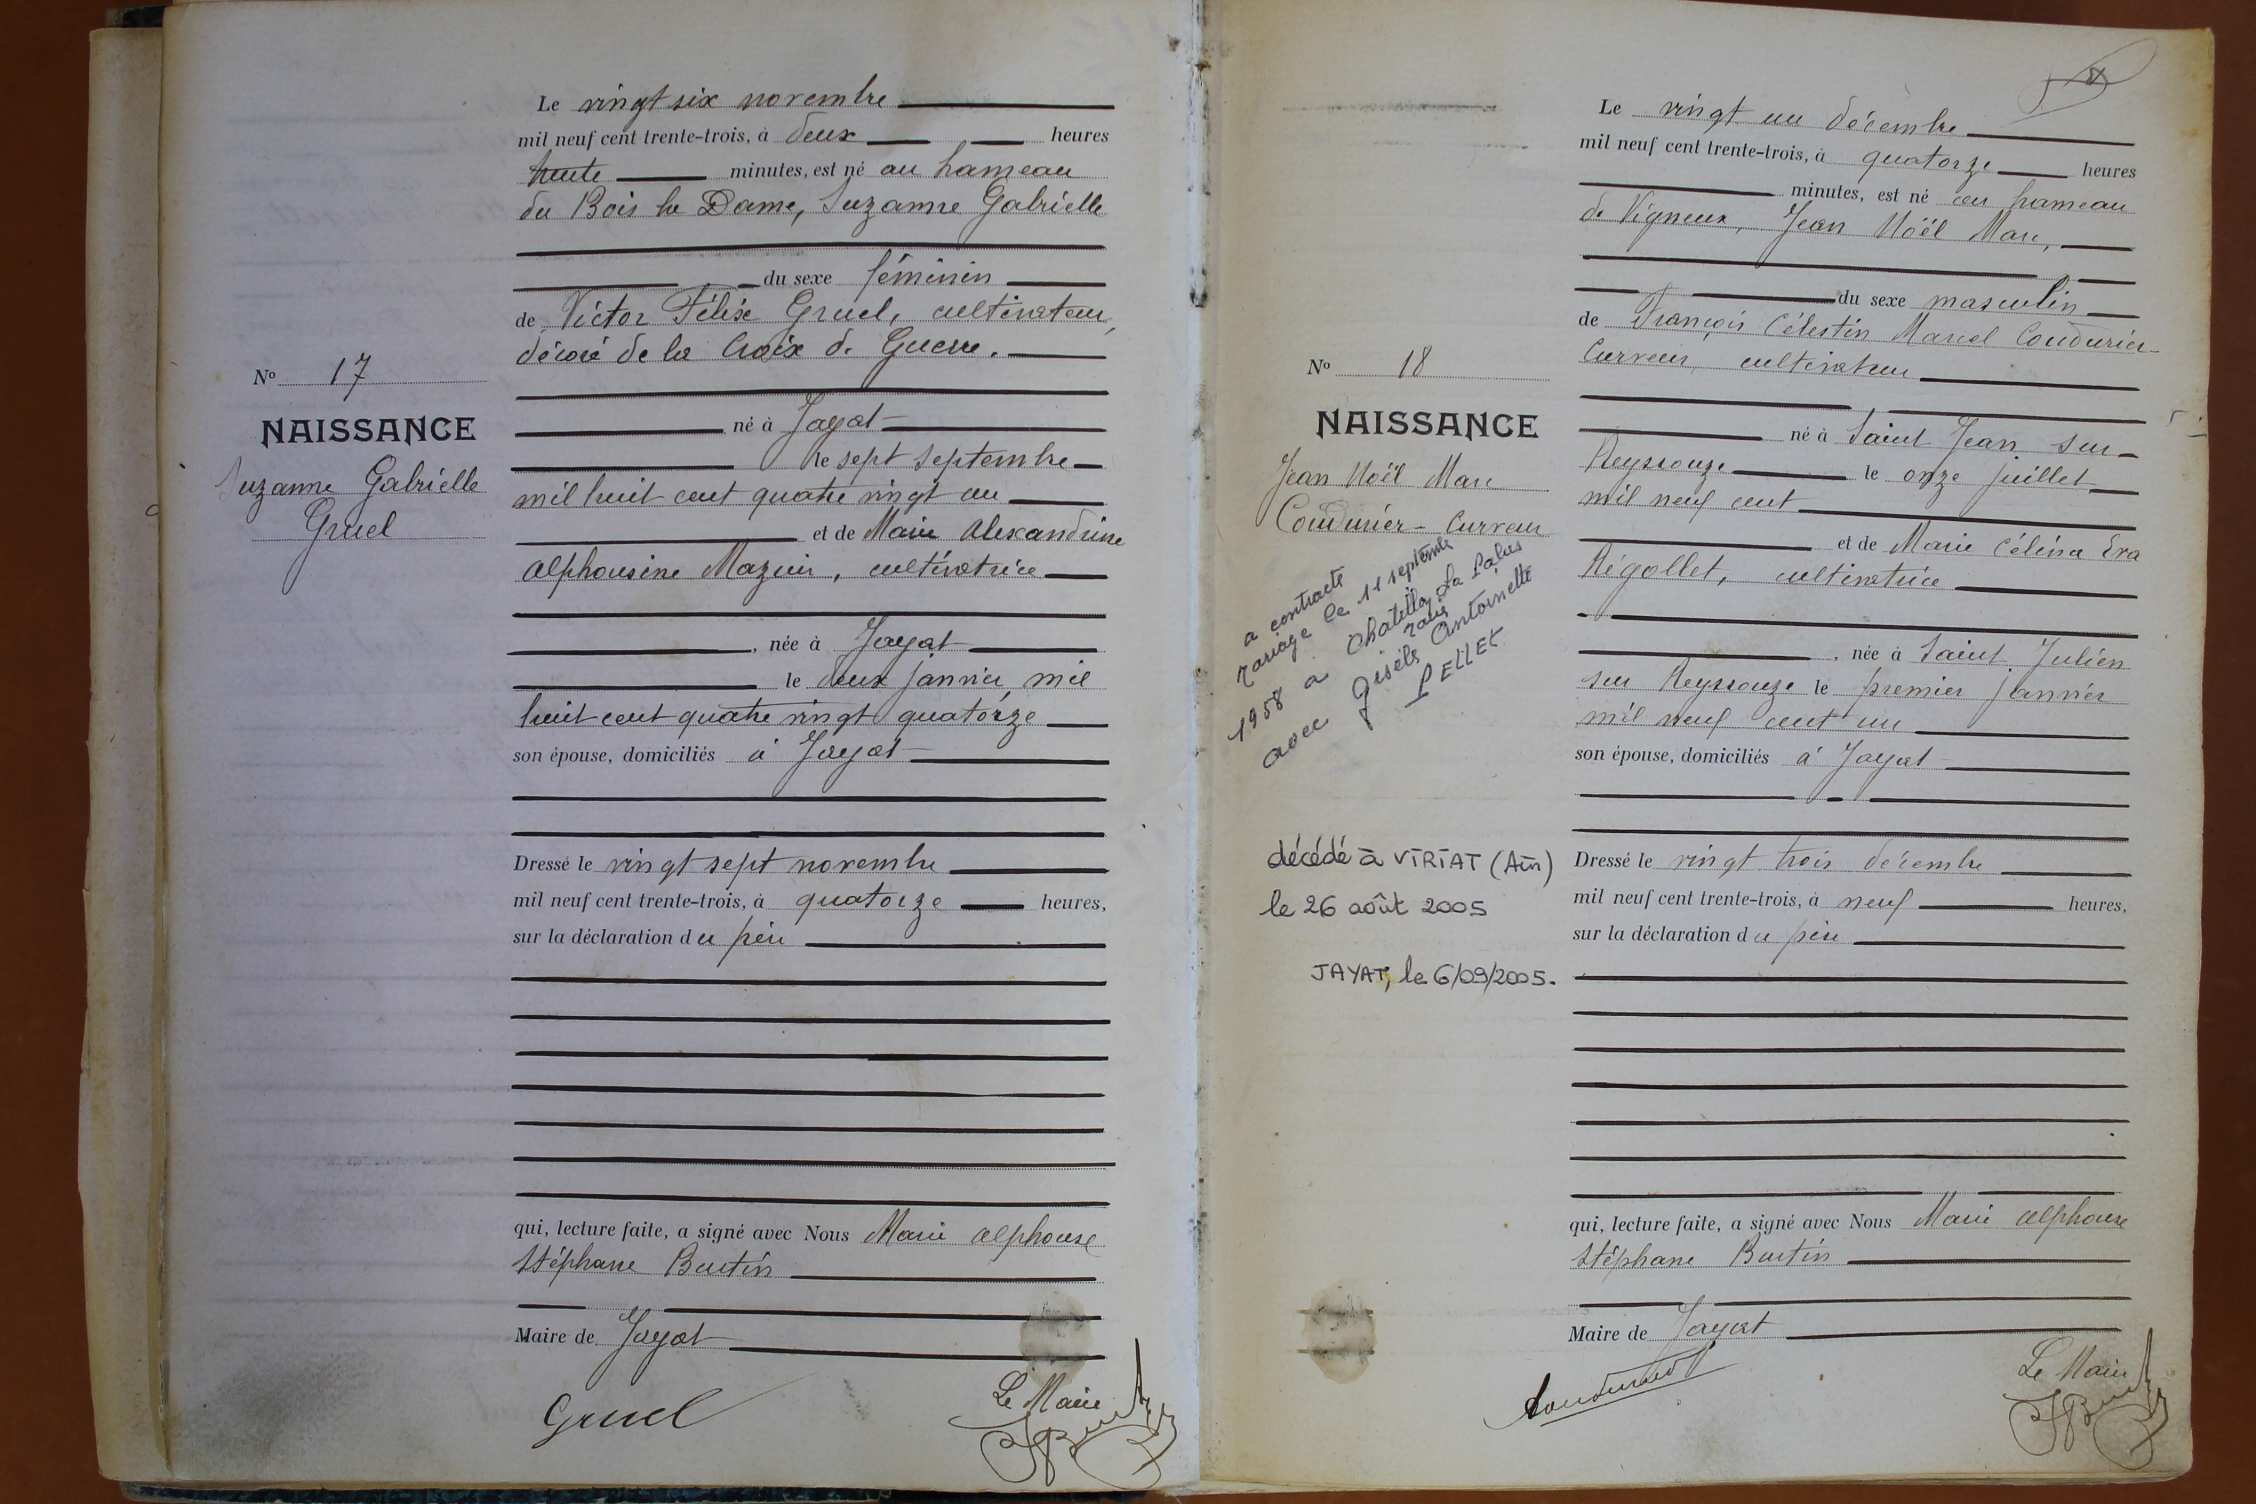 Le vingt six novembre
mil neuf cent trente-trois, à deux heures
trente minutes, est né au hameau
du Bois la Dame, Suzanne Gabrielle
du sexe féminin
de Victor Félix Gruel, cultivateur,
décoré de la Croix de Guerre.
No 17
NAISSANCE
Suzanne Gabrielle
Gruel
né à Jayat
le sept septembre
mil huit cent quatre vingt un
et de Marie Alexandrine
Alphonsine Mazuir, cultivatrice
, née à Jayat
le deux janvier mil
huit cent quatre vingt quatorze
son épouse, domiciliés à Jayat
Dressé le vingt sept novembre
mil neuf cent trente-trois, à quatorze heures,
sur la déclaration du père
qui, lecture faite, a signé avec Nous Marie Alphonse
Stéphane Burtin
Maire de Jayat
Gruel
Le Maire
Le vingt un décembre
mil neuf cent trente-trois, à quatorze heures
minutes, est né au hameau
de Vigneux, Jean Noël Marc,
du sexe masculin
de François Célestin Marcel Coudurier-
Curveur, cultivateur
No 18
NAISSANCE
Jean Noël Marc
Coudurier-Curveur
a contracté
mariage le 11 septembre
1958 à Chatillon La Palud
avec Gisèle Marie Antoinette
PELLET
décédé à VIRIAT (Ain)
le 26 août 2005
JAYAT, le 6/09/2005.
né à Saint Jean sur
Reyssouze le onze juillet
mil neuf cent
et de Marie Célina Eva
Régollet, cultivatrice
, née à Saint Julien
sur Reyssouze le premier janvier
mil neuf cent un
son épouse, domiciliés à Jayat
Dressé le vingt trois décembre
mil neuf cent trente-trois, à neuf heures,
sur la déclaration du père
qui, lecture faite, a signé avec Nous Marie Alphonse
Stéphane Burtin
Maire de Jayat
Coudurier
Le Maire